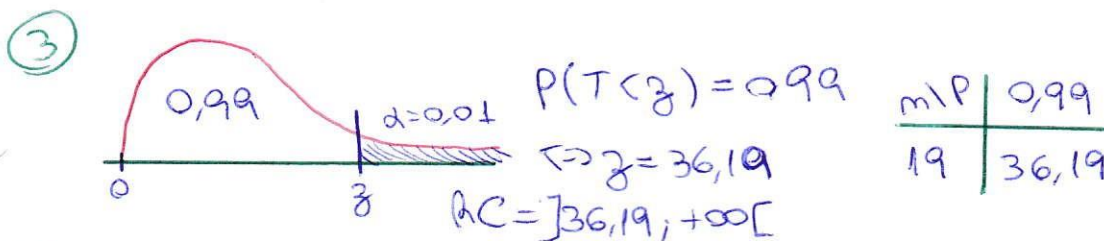 ③
0,99
α=0,01
0
z
P(T<z)=0,99
<=> z=36,19
RC=]36,19; +∞[
m\P 0,99
19 36,19